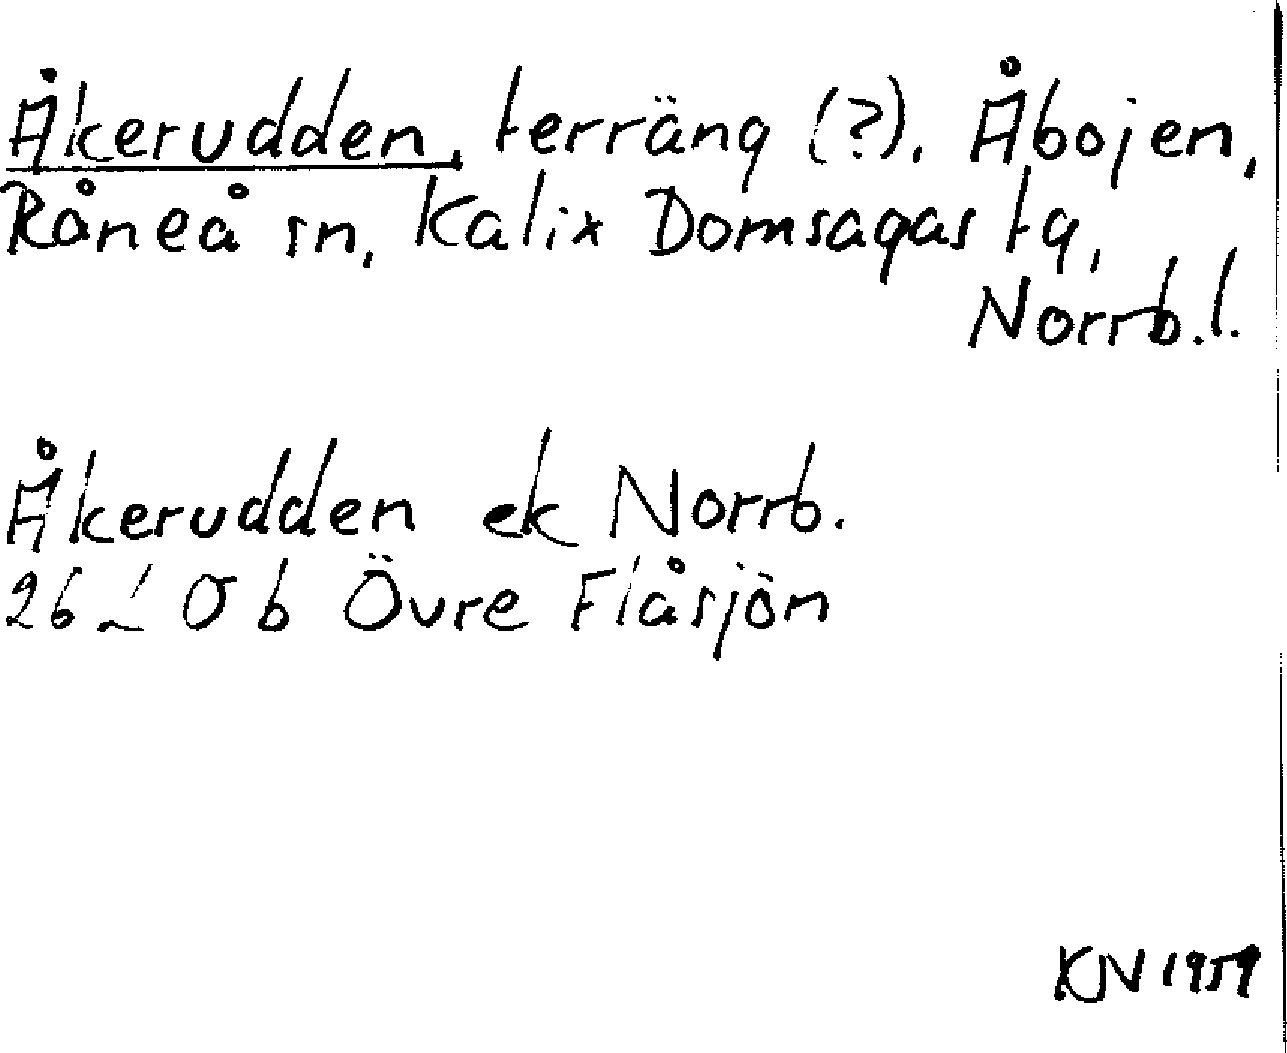 Åkerudden, terräng (?). Åbojen,
Råneå sn, Kalix Domsagas tg,
Norrb.l.
Åkerudden ek Norrb.
26 L 0 b Övre Flåsjön
KN 1959